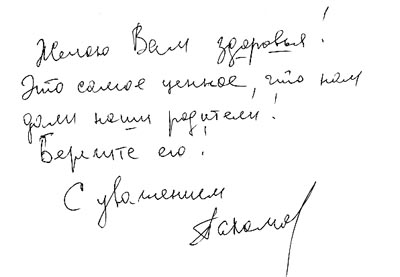 Желаю Вам здоровья!
Это самое ценное, что нам
дали наши родители!
Берегите его!
С уважением